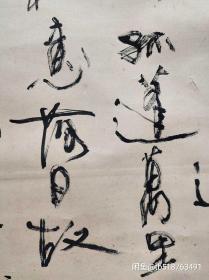 孤蓬萬里
意落日故
闲鱼